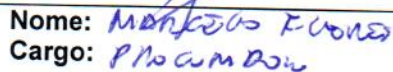 Nome: Marcelo Flores
Cargo: Procurador